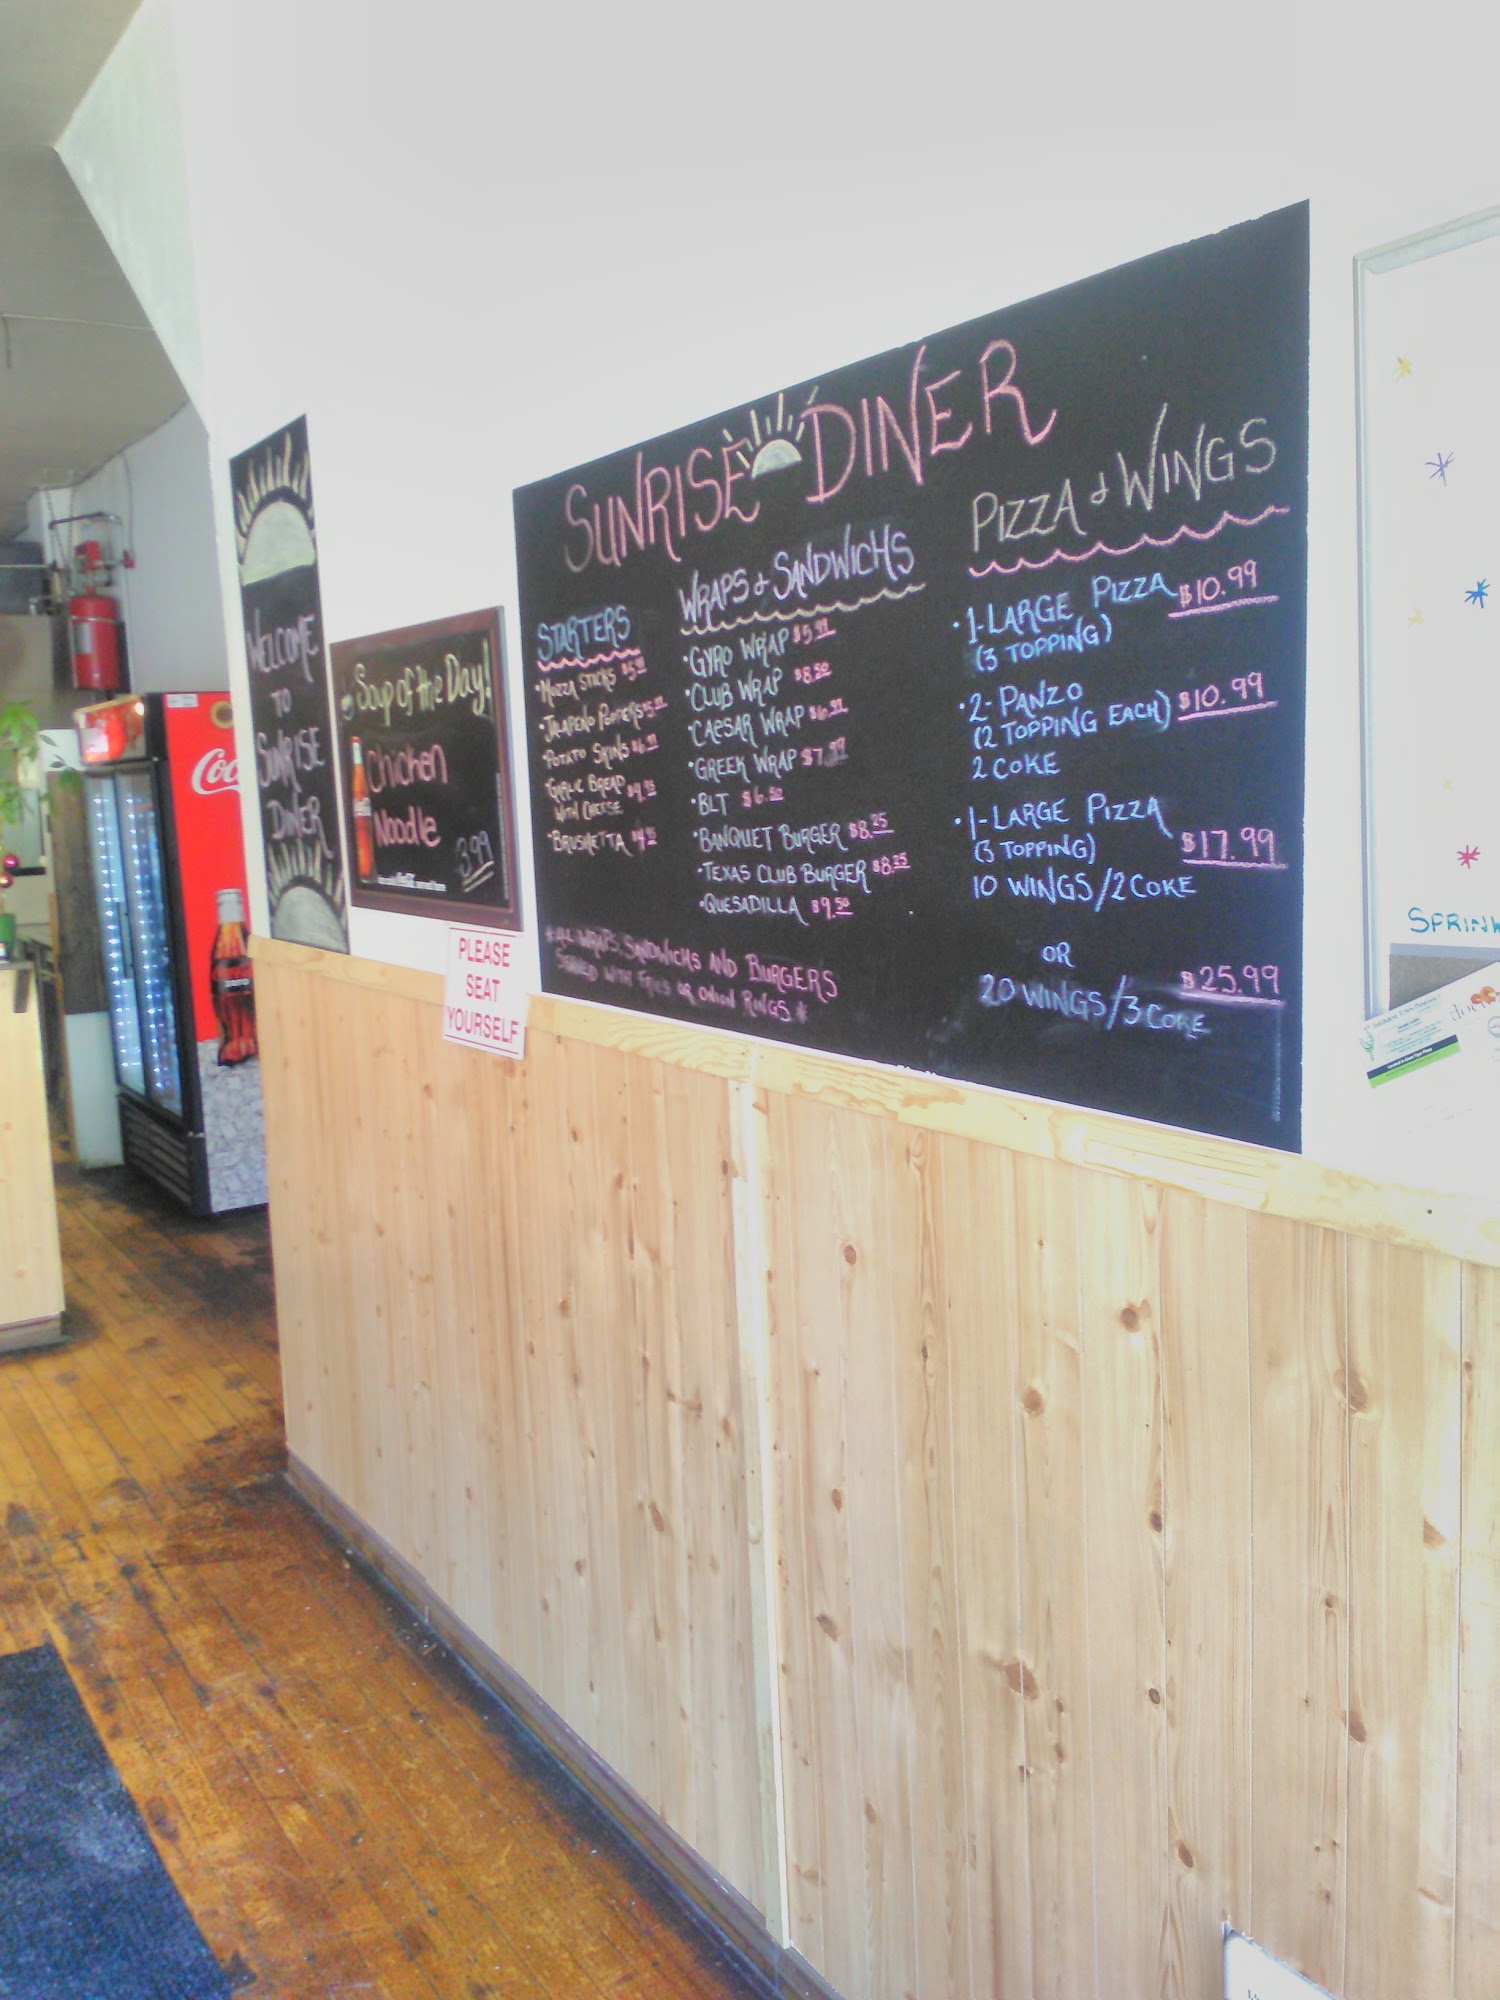 WELCOME
TO
SUNRISE
DINER
Soup of the Day!
Chicken
Noodle
3.99
PLEASE
SEAT
YOURSELF
SUNRISE DINER
STARTERS
• MOZZA STICKS
• JALAPENO POPPERS
• POTATO SKINS
• GARLIC BREAD $4.95
WITH CHEESE
• BRUSHETTA $4.95
WRAPS & SANDWICHS
• GYRO WRAP $5.99
• CLUB WRAP $8.50
• CAESAR WRAP $6.99
• GREEK WRAP $7.99
• BLT $6.50
• BANQUET BURGER $8.25
• TEXAS CLUB BURGER $8.25
• QUESADILLA $9.50
* ALL WRAPS, SANDWICHS AND BURGERS
SERVED WITH FRIES OR ONION RINGS *
PIZZA & WINGS
• 1-LARGE PIZZA $10.99
(3 TOPPING)
• 2-PANZO $10.99
(2 TOPPING EACH)
2 COKE
• 1-LARGE PIZZA
(3 TOPPING) $17.99
10 WINGS/2 COKE
OR
20 WINGS/3 COKE $25.99
Coc
zero